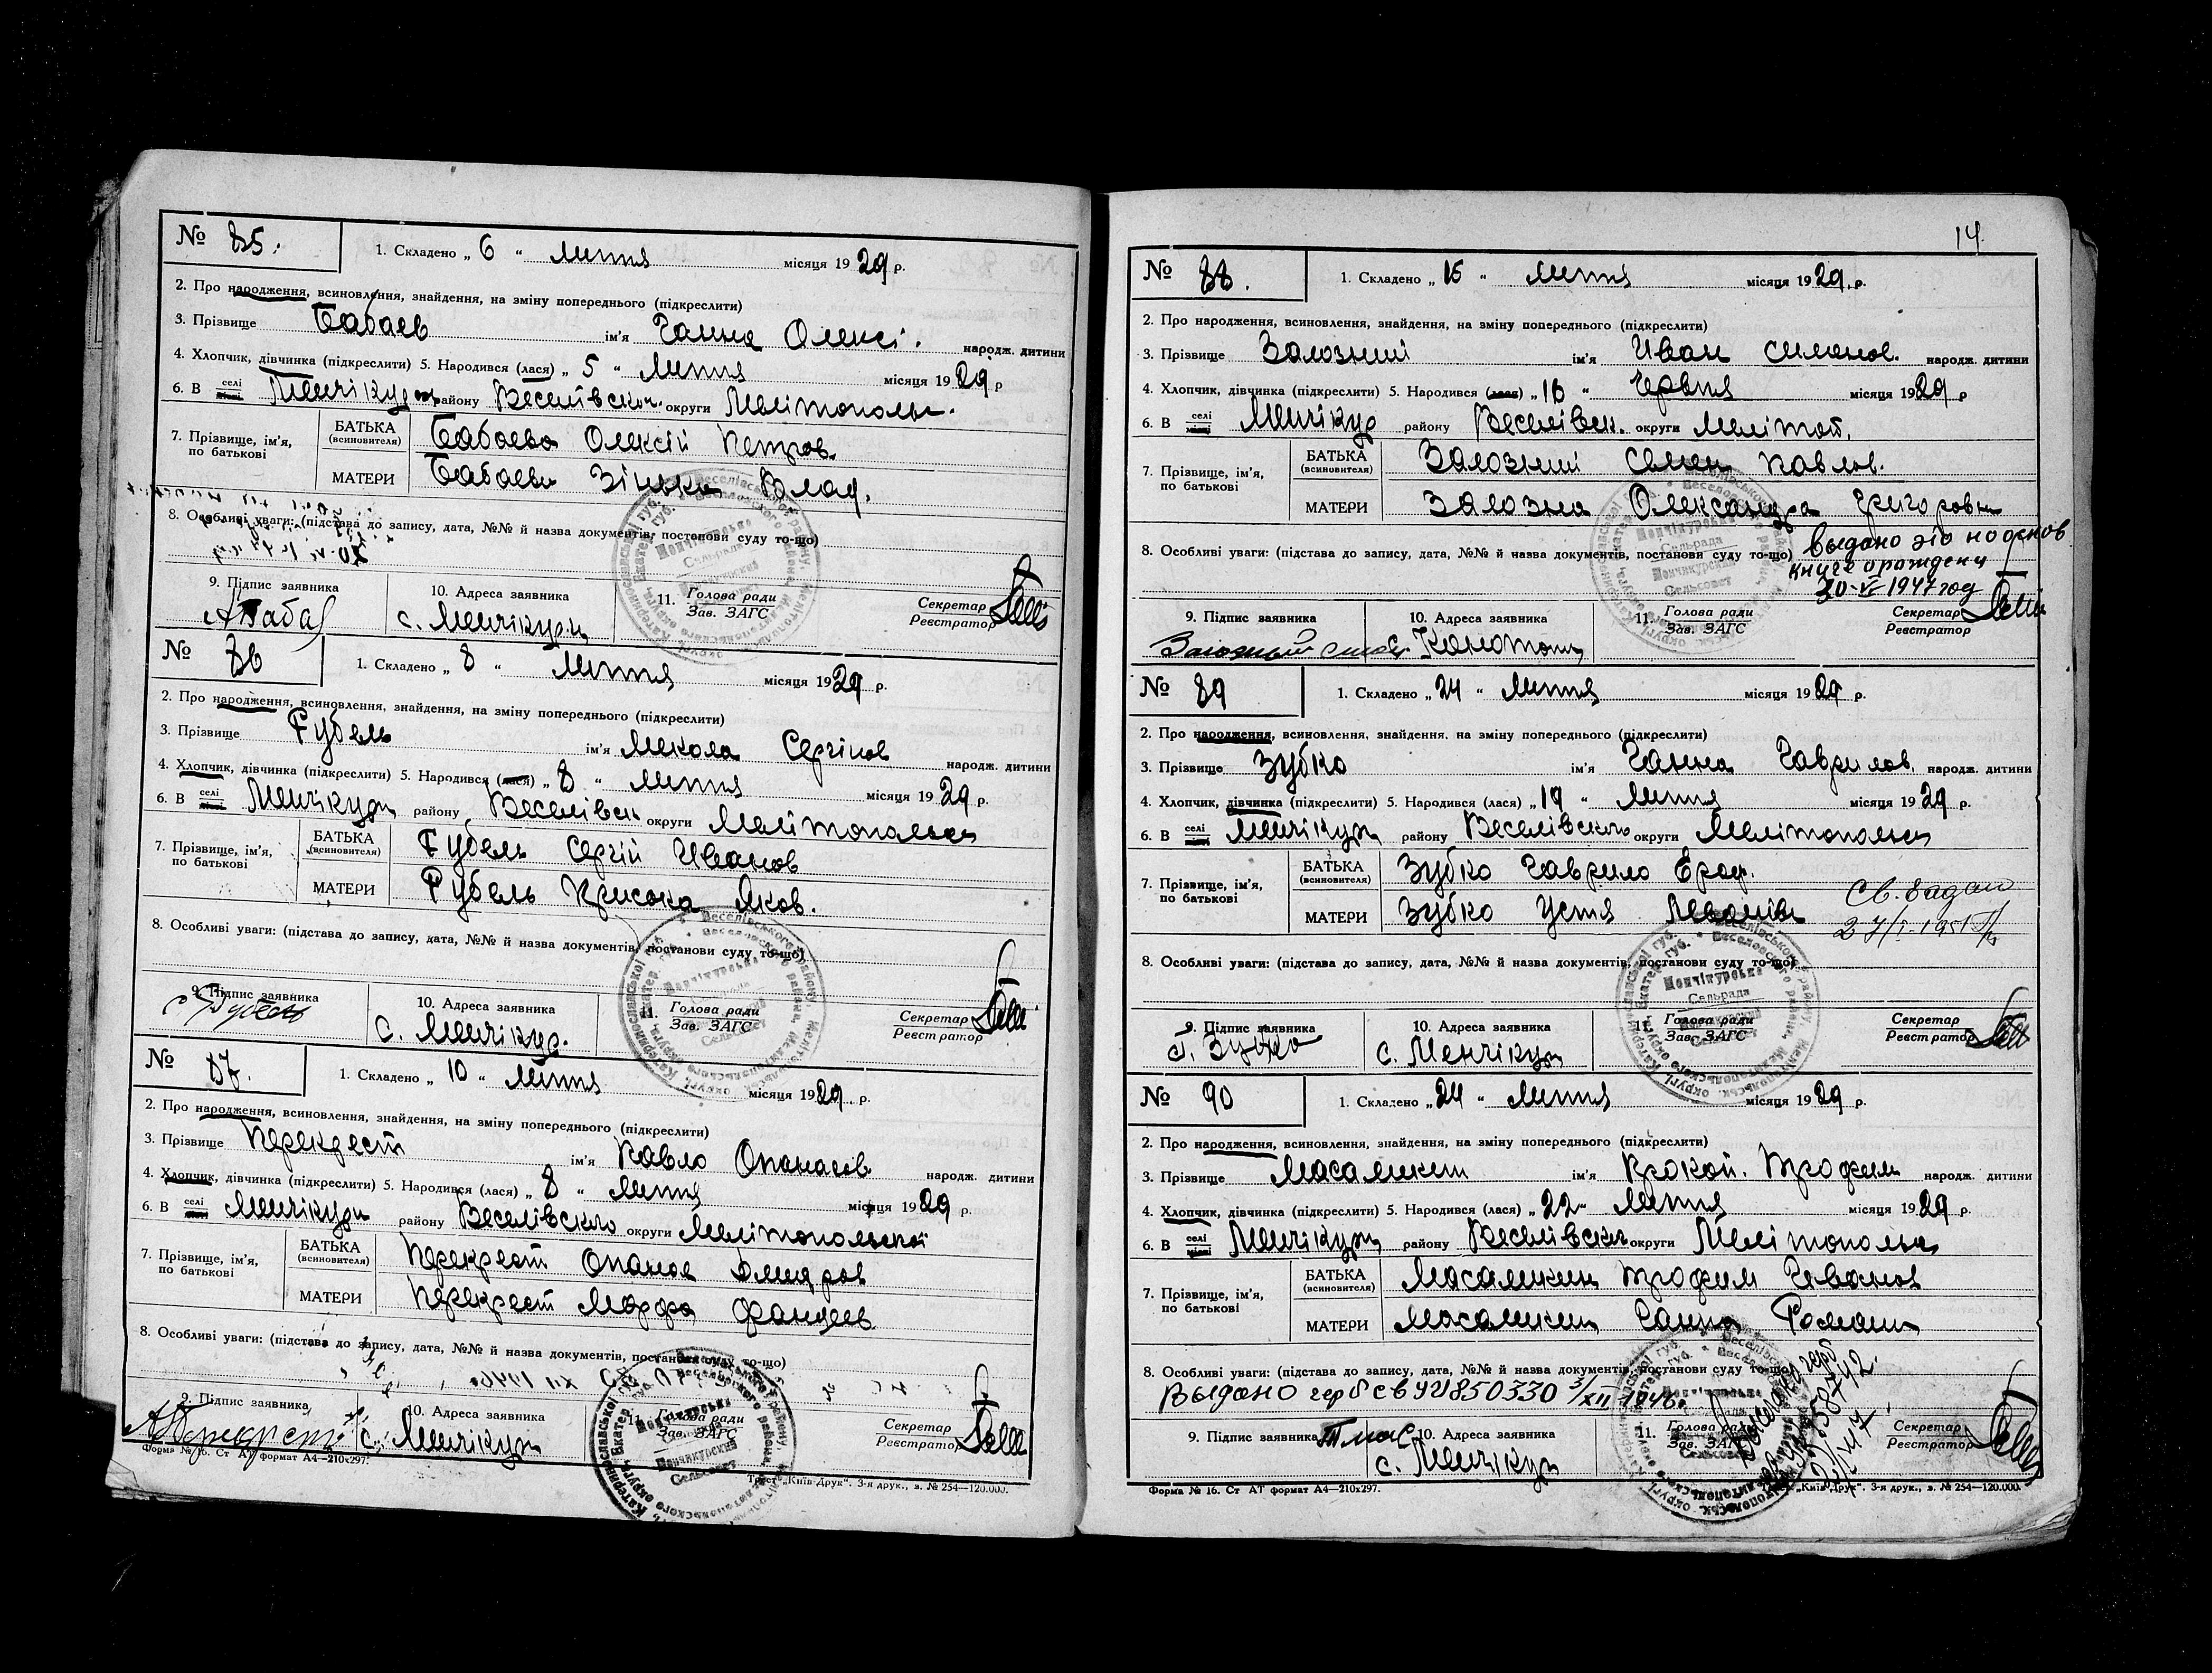 № 85.
1. Складено „ 6 “ липня місяця 1929 р.
2. Про народження, всиновлення, знайдення, на зміну попереднього (підкреслити)
3. Прізвище Бабаев ім'я Ганна Олексі. народж. дитини
4. Хлопчик, дівчинка (підкреслити) 5. Народився (лася) „ 5 “ липня місяця 1929 р
6. В селі Менчікури району Веселівськ. округи Мелітопольс.
7. Прізвище, ім'я, по батькові
БАТЬКА (всиновителя) Бабаева Олексій Петров.
МАТЕРИ Бабаева Зінька Влад.
8. Особливі уваги: (підстава до запису, дата, №№ й назва документів, постанови суду то-що)
9. Підпис заявника
10. Адреса заявника с. Менчікури
11. Голова ради Зав. ЗАГС
Секретар Реєстратор
№ 86
1. Складено „ 8 “ липня місяця 1929 р.
2. Про народження, всиновлення, знайдення, на зміну попереднього (підкреслити)
3. Прізвище Рубель ім'я Микола Сергіюв народж. дитини
4. Хлопчик, дівчинка (підкреслити) 5. Народився (лася) „ 8 “ липня місяця 1929 р.
6. В селі Менчікури району Веселівськ округи Мелітопольск
7. Прізвище, ім'я, по батькові
БАТЬКА (всиновителя) Рубель Сергій Иванов
МАТЕРИ Рубель Яков.
8. Особливі уваги: (підстава до запису, дата, №№ й назва документів, постанови суду то-що)
9. Підпис заявника С Рубель
10. Адреса заявника с. Менчікур.
11. Голова ради Зав. ЗАГС
Секретар Реєстратор
№ 87.
1. Складено „ 10 “ липня місяця 1929 р.
2. Про народження, всиновлення, знайдення, на зміну попереднього (підкреслити)
3. Прізвище Перехрест ім'я Павло Опанасов народж. дитини
4. Хлопчик, дівчинка (підкреслити) 5. Народився (лася) „ 8 “ липня місяця 1929 р.
6. В селі Менчікури району Веселівского округи Мелітопольскої
7. Прізвище, ім'я, по батькові
БАТЬКА (всиновителя) Перехрест Опанас Дмитров
МАТЕРИ Перехрест Марфа
8. Особливі уваги: (підстава до запису, дата, №№ й назва документів, постанови суду то-що)
9. Підпис заявника
10. Адреса заявника с. Менчікури
11. Голова ради Зав. ЗАГС
Секретар Реєстратор
Форма № 16. Ст АТ формат А4—210х297. Трест „Київ-Друк“. 3-я друк., в. № 254—120.000.
14.
№ 88.
1. Складено „ 15 “ липня місяця 1929. р.
2. Про народження, всиновлення, знайдення, на зміну попереднього (підкреслити)
3. Прізвище Залозний ім'я Иван Симонов. народж. дитини
4. Хлопчик, дівчинка (підкреслити) 5. Народився (лася) „ 16 “ червня місяця 1929 р
6. В селі Менчікур району Веселівск. округи Мелітоп.
7. Прізвище, ім'я, по батькові
БАТЬКА (всиновителя) Залозний Семен Павлов.
МАТЕРИ Залозна Олександра Григоровна
8. Особливі уваги: (підстава до запису, дата, №№ й назва документів, постанови суду то-що) Выдано
книге
30-VI 1947 год
9. Підпис заявника Залозный
10. Адреса заявника
11. Голова ради Зав. ЗАГС
Секретар Реєстратор
№ 89
1. Складено „ 24 “ липня місяця 1929 р.
2. Про народження, всиновлення, знайдення, на зміну попереднього (підкреслити)
3. Прізвище Зубко ім'я Ганна Гаврилов. народж. дитини
4. Хлопчик, дівчинка (підкреслити) 5. Народився (лася) „ 19 “ липня місяця 1929 р.
6. В селі Менчікури району Веселівского округи Мелітопольск
7. Прізвище, ім'я, по батькові
БАТЬКА (всиновителя) Зубко Гаврило Ероф.
МАТЕРИ Зубко Устя
Св. выдано
8. Особливі уваги: (підстава до запису, дата, №№ й назва документів, постанови суду то-що)
9. Підпис заявника Г. Зубко
10. Адреса заявника с. Менчікури
11. Голова ради Зав. ЗАГС
Секретар Реєстратор
№ 90
1. Складено „ 24 “ липня місяця 1929 р.
2. Про народження, всиновлення, знайдення, на зміну попереднього (підкреслити)
3. Прізвище Масамкин ім'я Прокоп. Трофим народж. дитини
4. Хлопчик, дівчинка (підкреслити) 5. Народився (лася) „ 22 “ липня місяця 1929 р.
6. В селі Менчікури району Веселівск округи Мелітопольск
7. Прізвище, ім'я, по батькові
БАТЬКА (всиновителя) Масамкин Трофим Иванов
МАТЕРИ Масамкин Ганна Роман
8. Особливі уваги: (підстава до запису, дата, №№ й назва документів, постанови суду то-що)
Выдано герб св УЧ 850330 3/XII 1946.
9. Підпис заявника
10. Адреса заявника с. Менчікури
11. Голова ради Зав. ЗАГС
Секретар Реєстратор
Форма № 16. Ст АТ формат А4—210х297. Трест „Київ-Друк“. 3-я друк., в. № 254—120.000.